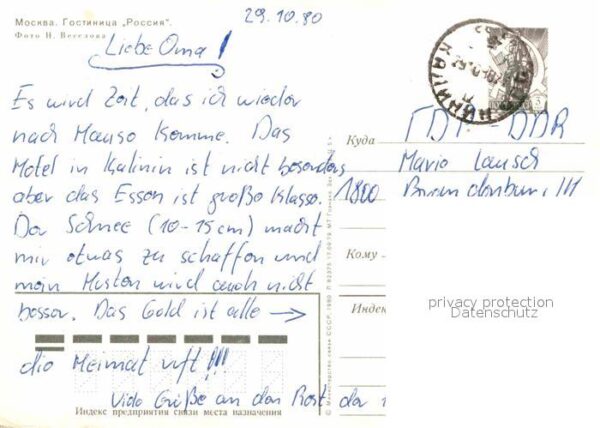 Москва. Гостиница „Россия".
Фото Н. Веселова
29.10.80
Liebe Oma!
Es wird Zeit, das ich wieder
nach Hause komme. Das
Motel in Kalinin ist nicht besonders
aber das Essen ist große Klasse.
Der Schnee (10-15cm) macht
mir etwas zu schaffen und
mein Husten wird auch nicht
besser. Das Geld ist alle →
die Heimat ruft!!!
Viele Grüße an den Rest der
Индекс предприятия связи места назначения
© Министерство связи СССР. 1980
КАЛИНИН
Куда
ГДР-DDR
Mario Lausch
1800 Brandenburg
Кому
Индекс
privacy protection
Datenschutz